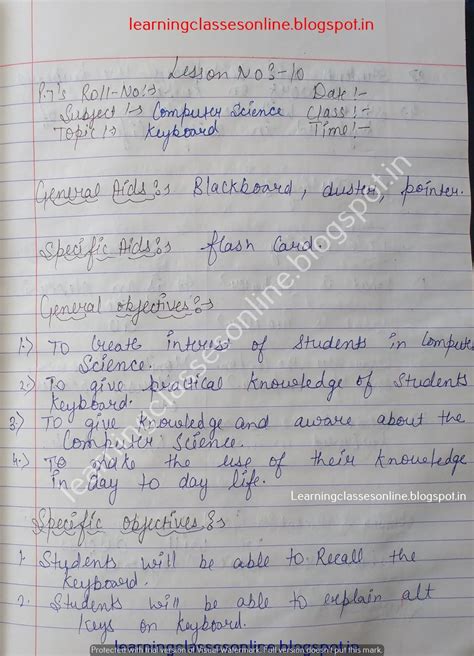 learningclassesonline.blogspot.in
Lesson No 3-10
P.T's Roll-No:- Date:-
Subject:- Computer Science Class:-
Topic:- Keyboard Time:-
General Aids:- Blackboard, duster, pointer.
Specific Aids:- flash Card.
General objectives:-
1.) To Create interest of Students in Computer
Science.
2.) To give practical knowledge of Students
Keyboard.
3.) To give knowledge and aware about the
Computer Science.
4.) To make the use of their knowledge
in day to day life.
Learningclassesonline.blogspot.in
Specific objectives:-
1. Students will be able to Recall the
Keyboard.
2. Students will be able to explain alt
Keys on Keyboard.
learningclassesonline.blogspot.in
Protected with trial version of Visual Watermark. Full version doesn't put this mark.
learningclassesonline.blogspot.in